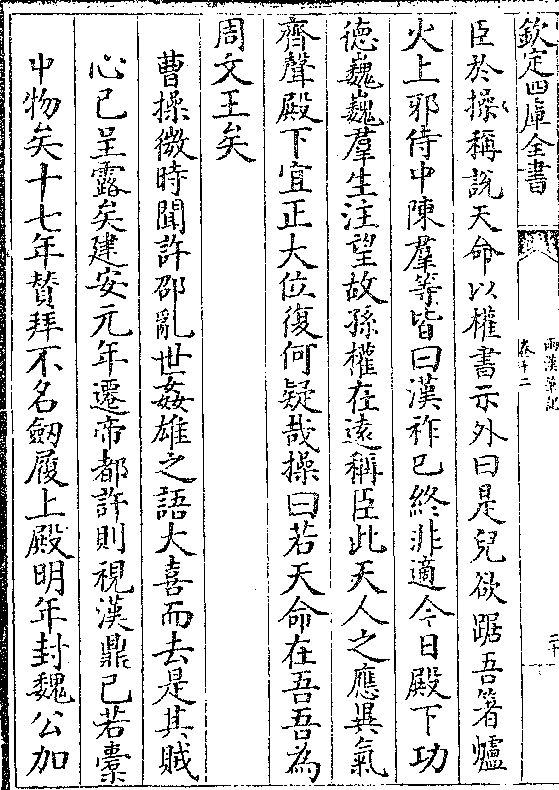 欽定四庫全書
兩漢筆記
卷十二
二十
臣於操稱說天命以權書示外曰是兒欲踞吾著爐
火上邪侍中陳羣等皆曰漢祚已終非適今日殿下功
德巍巍羣生注望故孫權在遠稱臣此天人之應異氣
齊聲殿下宜正大位復何疑哉操曰若天命在吾吾為
周文王矣
曹操微時聞許邵亂世姦雄之語大喜而去是其賊
心已呈露矣建安元年遷帝都許則視漢鼎已若橐
中物矣十七年贊拜不名劒履上殿明年封魏公加